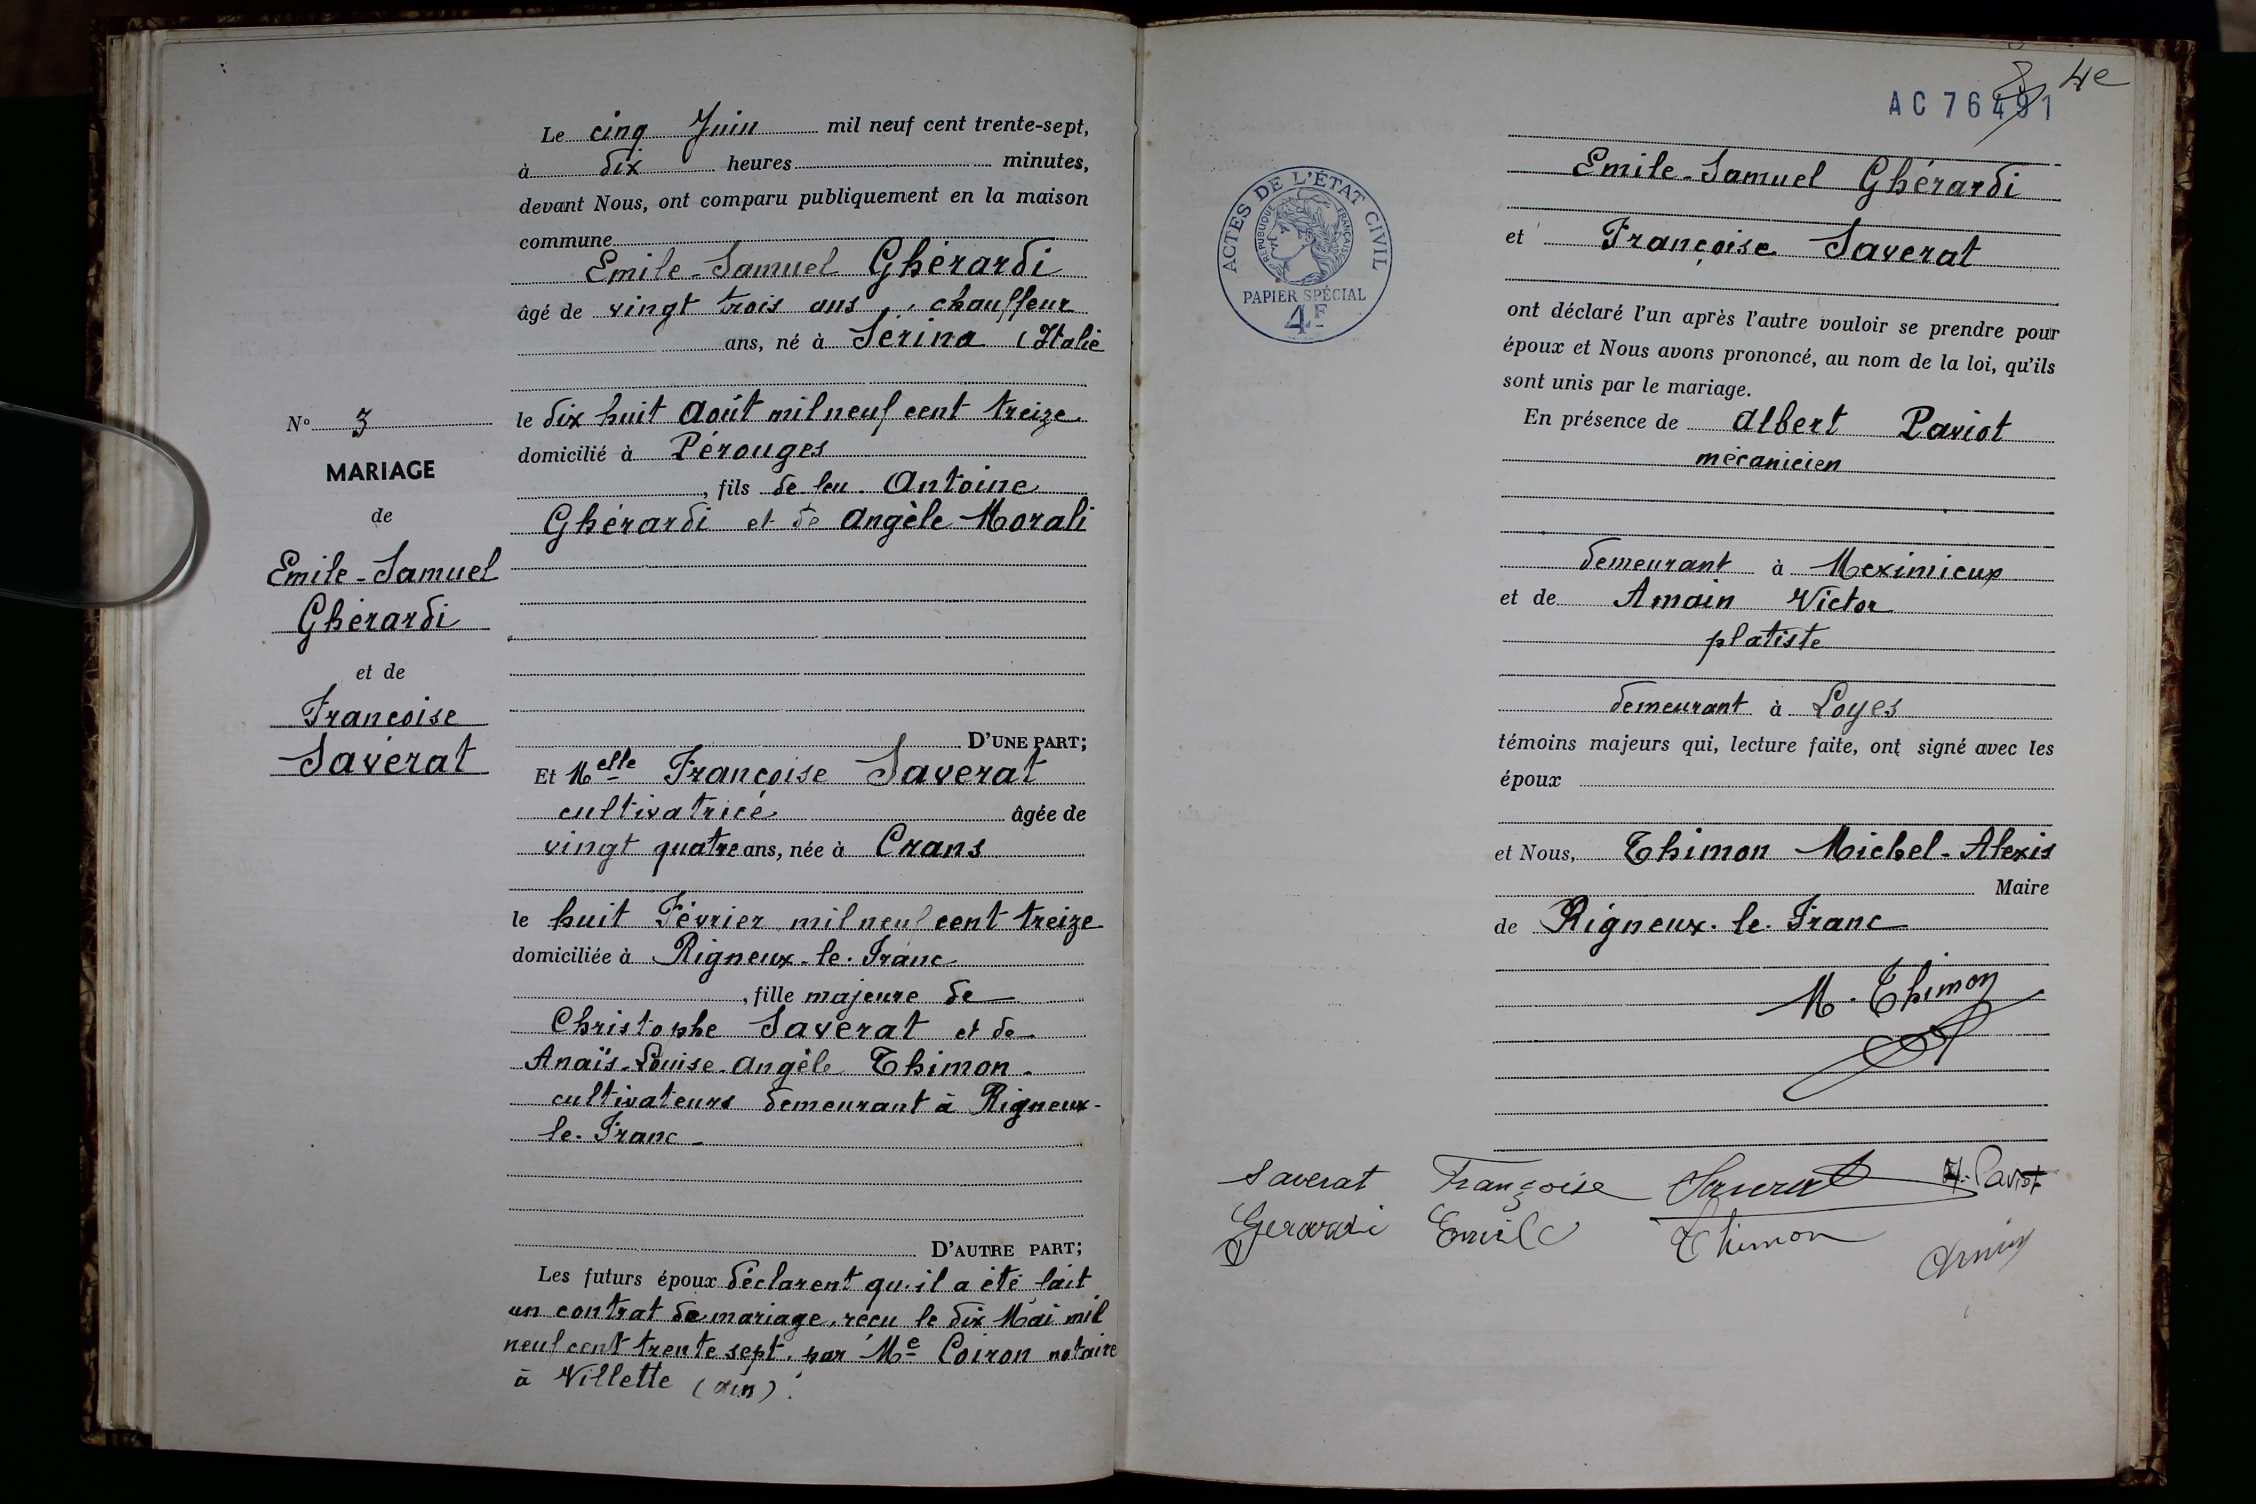 Le cinq Juin mil neuf cent trente-sept,
à dix heures minutes,
devant Nous, ont comparu publiquement en la maison
commune
Emile-Samuel Ghérardi
âgé de vingt trois ans, chauffeur
ans, né à Sérina (Italie
le dix huit Août mil neuf cent treize
domicilié à Pérouges
, fils de feu Antoine
Ghérardi et de Angèle Morali
N° 3
MARIAGE
de
Emile-Samuel
Ghérardi
et de
Françoise
Savérat
D'UNE PART;
Et Melle Françoise Saverat
cultivatrice âgée de
vingt quatre ans, née à Crans
le huit Février mil neuf cent treize
domiciliée à Rigneux-le-Franc
, fille majeure de
Christophe Saverat et de
Anaïs-Louise-Angèle Thimon
cultivateurs demeurant à Rigneux-
le-Franc
D'AUTRE PART;
Les futurs époux déclarent qu'il a été fait
un contrat de mariage, reçu le dix Mai mil
neuf cent trente sept, par Me Coiron notaire
à Villette (Ain).
4e
AC 76491
ACTES DE L'ÉTAT CIVIL
RÉPUBLIQUE FRANÇAISE
PAPIER SPÉCIAL
4F
Emile-Samuel Ghérardi
et Françoise Saverat
ont déclaré l'un après l'autre vouloir se prendre pour
époux et Nous avons prononcé, au nom de la loi, qu'ils
sont unis par le mariage.
En présence de Albert Paviot
mécanicien
demeurant à Meximieux
et de Amain Victor
platiste
demeurant à Loyes
témoins majeurs qui, lecture faite, ont signé avec les
époux
et Nous, Thimon Michel-Alexis
Maire
de Rigneux-le-Franc
M. Thimon
Saverat Françoise Saverat A. Paviot
Gerardi Emile Thimon